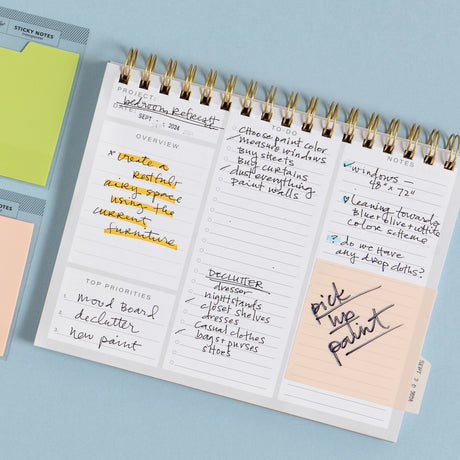 STICKY NOTES
STICKY NOTES
PROJECT:
bedroom Refresh
DATE:
SEPT 2024
OVERVIEW
* Create a
restful,
airy space
using the
current
furniture
TOP PRIORITIES
1. Mood Board
2. declutter
3. New paint
TO-DO
Choose paint color
measure windows
Buy sheets
Buy curtains
dust everything
paint walls
DECLUTTER
dresser
nightstands
closet shelves
dresses
Casual clothes
bags + purses
shoes
NOTES
windows -
48" x 72"
leaning towards
Blue + olive + white
color scheme
? do we have
any drop cloths?
pick
up
paint